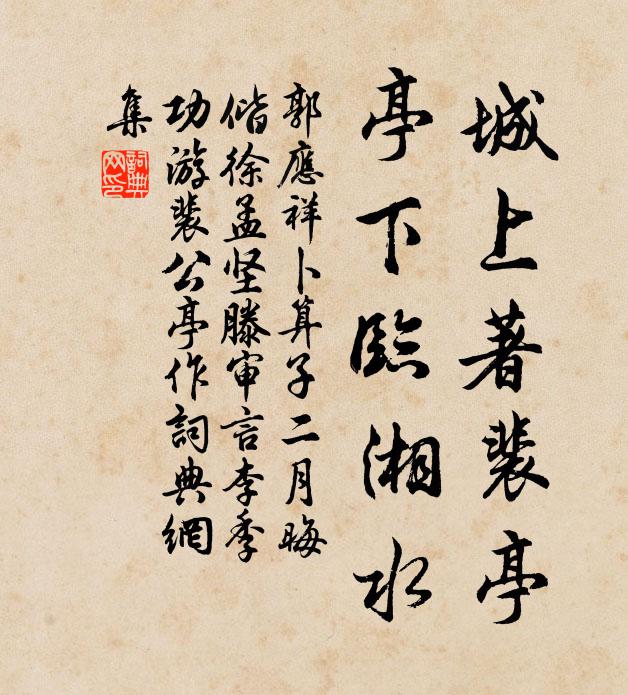 城上著裴亭
亭下臨湘水
郭應祥卜算子二月晦
偕徐孟坚滕审言李季
功游裴公亭作詞典網
集
詞典網印